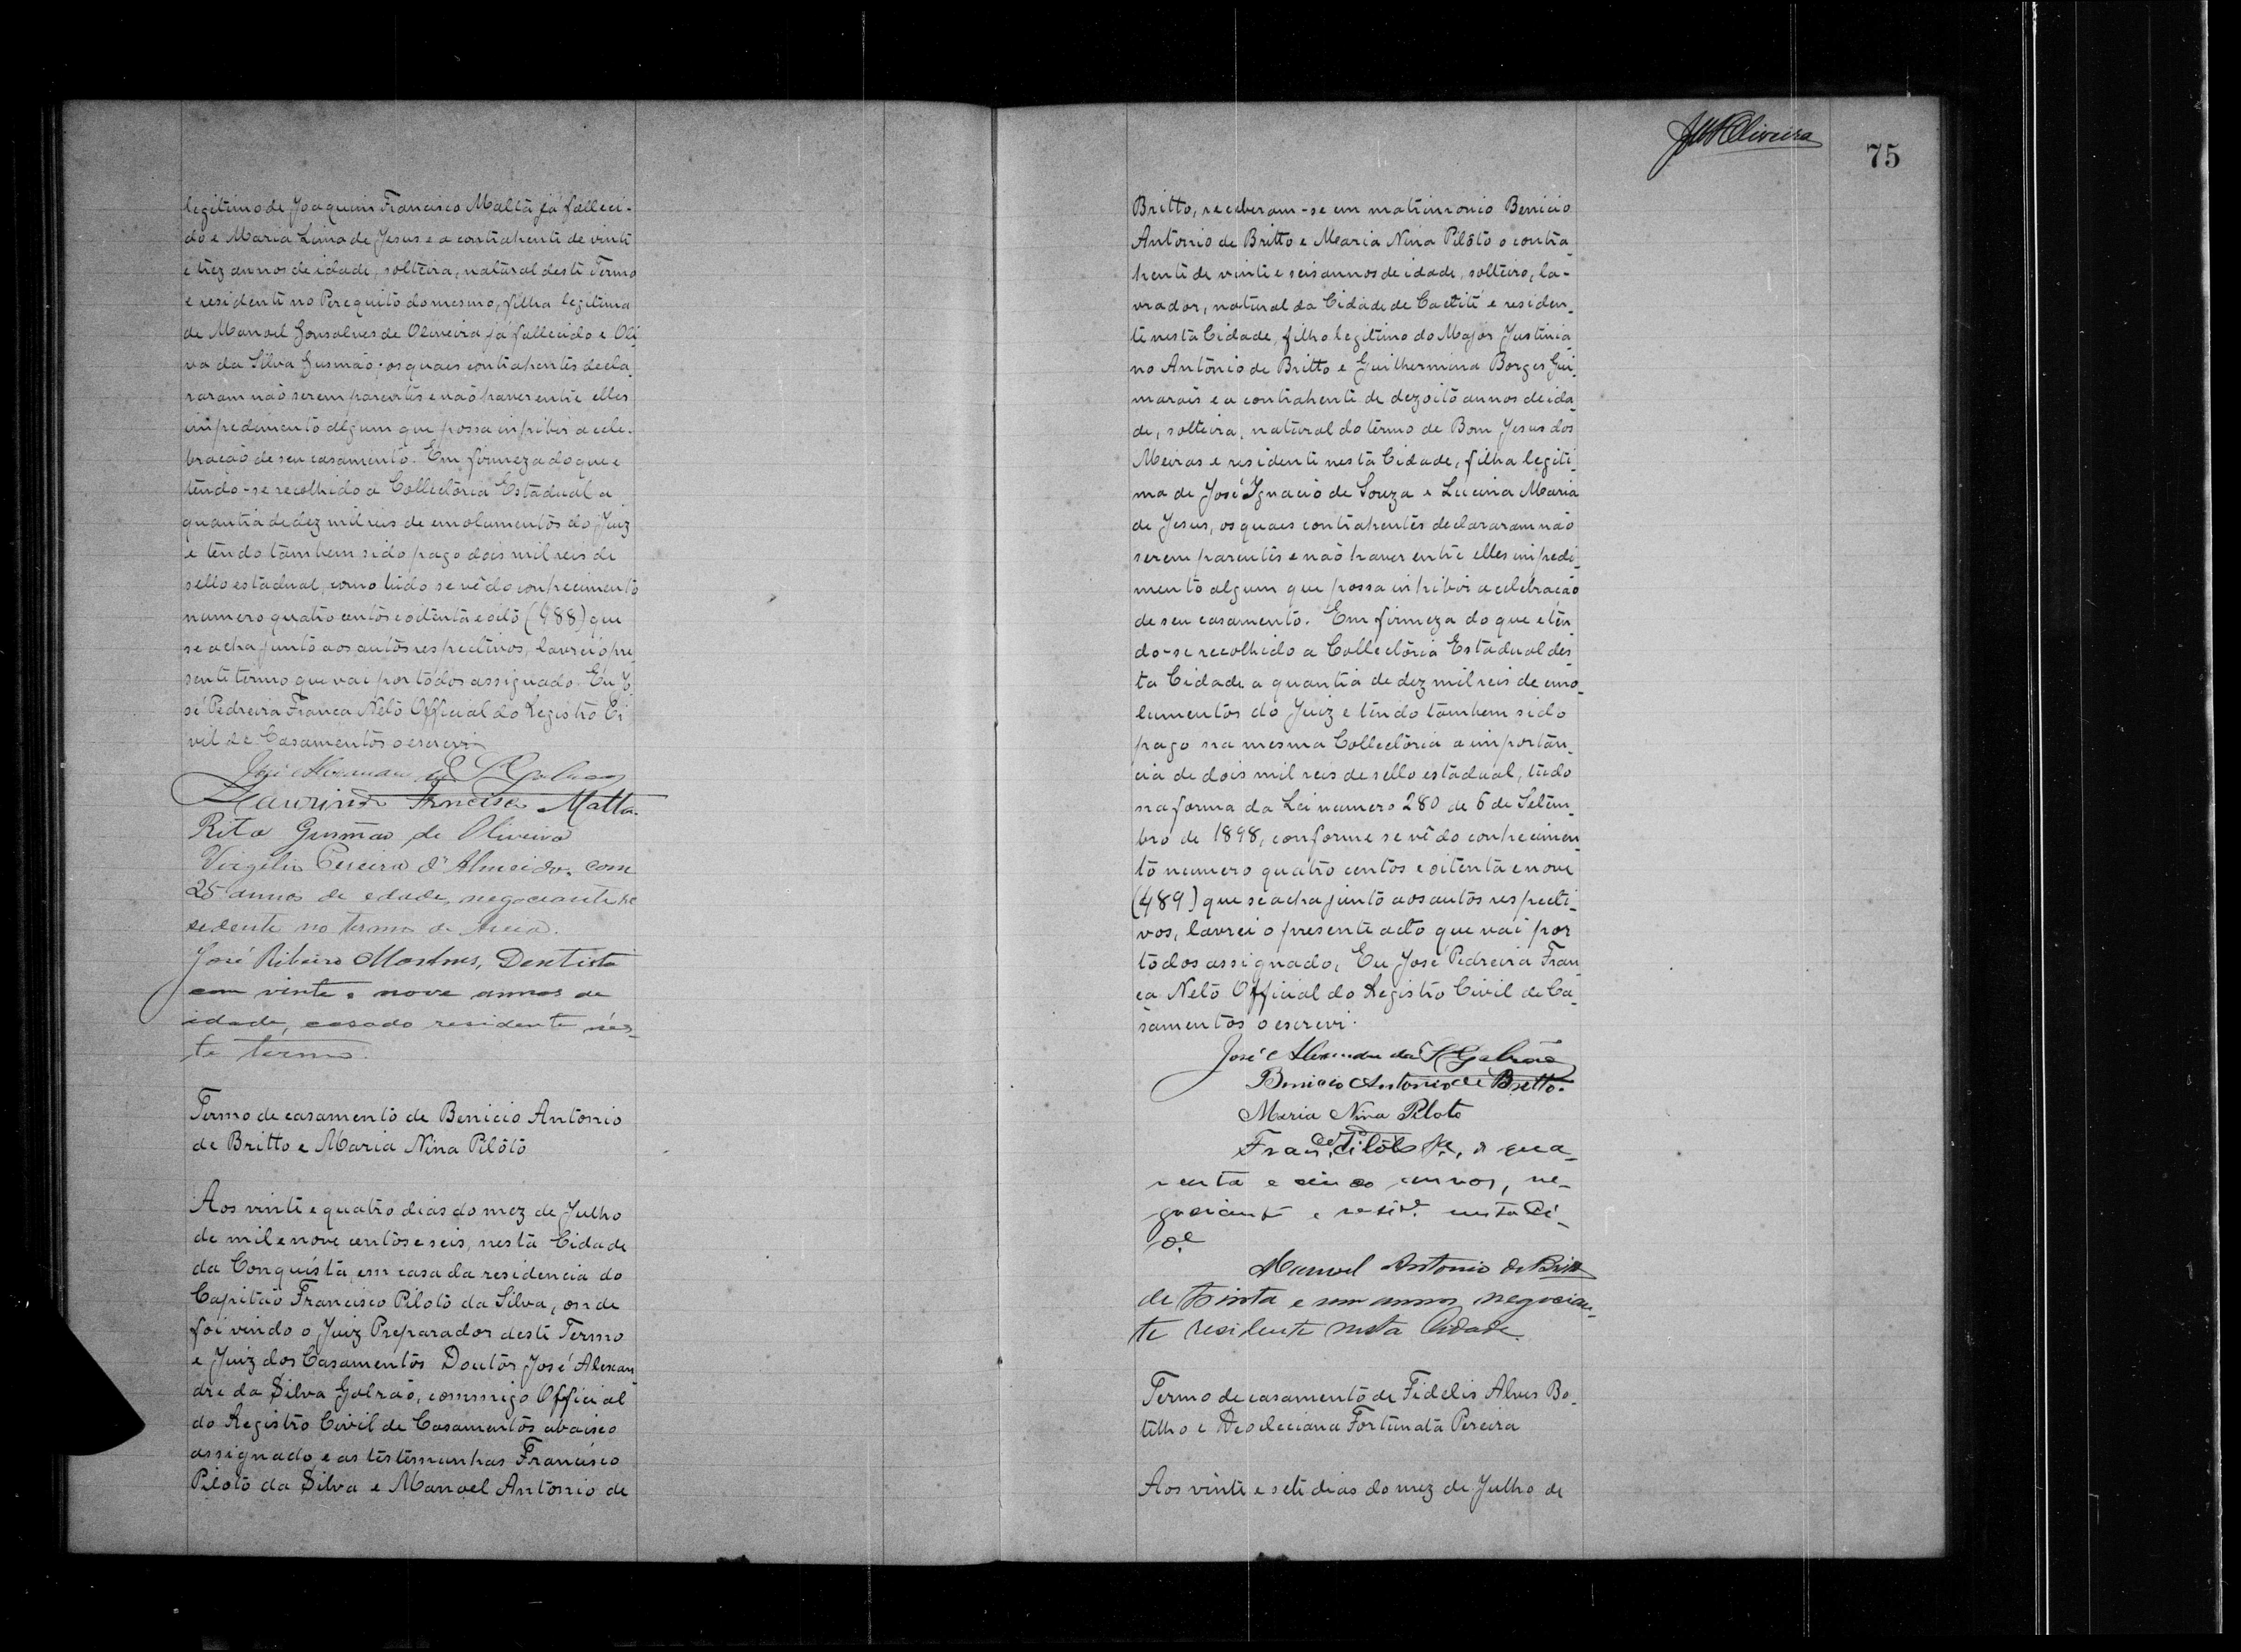 legitimo de Joaquim Francisco Malta já falleci-
do e Maria Lima de Jesus e a contrahente de vinte
e trez annos de idade, solteira, natural deste Termo
e residente no Perequito do mesmo, filha legitima
de Manoel Gonsalves de Oliveira já fallecido e Oli-
va da Silva Gusmão; os quaes contrahentes decla-
raram não serem parentes e não haver entre elles
impedimento algum que possa inhibir a cele-
bração de seu casamento. Em firmeza do que e
tendo-se recolhido a Collectoria Estadual a
quantia de dez mil reis de emolumentos do Juiz
e tendo tambem sido pago dois mil reis de
sello estadual, como tudo se vê do conhecimento
numero quatro centos e oitenta e oito (488) que
se acha junto aos autos respectivos, lavrei o pre-
sente termo que vai por todos assignado. Eu Jo-
sé Pedreira Franca Neto Official do Registro Ci-
vil de Casamentos o escrevi
José Alexandre da S. Galrão
Laurindo Francisco Malta.
Rita Gusmão de Oliveira
Virgilio Pereira d'Almeida, com
25 annos de edade, negociante re
sedente no termo de Areia.
José Ribeiro Martins, Dentista
com vinte e nove annos de
idade, casado residente nes-
te termo.
Termo de casamento de Benicio Antonio
de Britto e Maria Nina Pilôto
Aos vinte e quatro dias do mez de Julho
de mil e nove centos e seis, nesta Cidade
da Conquista, em casa da residencia do
Capitão Francisco Piloto da Silva, onde
foi vindo o Juiz Preparador deste Termo
e Juiz dos Casamentos Doutor José Alexan-
dre da Silva Galrão, commigo Official
do Registro Civil de Casamentos abaixo
assignado, e as testemunhas Francisco
Piloto da Silva e Manoel Antonio de
75
Britto, receberam-se em matrimonio Benicio
Antonio de Britto e Maria Nina Pilôto o contra-
hente de vinte e seis annos de idade, solteiro, la-
vrador, natural da Cidade de Caetité e residen-
te nesta Cidade, filho legitimo do Major Justinia-
no Antonio de Britto e Guilhermina Borges Gui-
marães e a contrahente de dezoito annos de ida-
de, solteira, natural do termo de Bom Jesus dos
Meiras e residente nesta Cidade, filha legiti-
ma de José Ignacio de Souza e Lucina Maria
de Jesus, os quaes contrahentes declararam não
serem parentes e não haver entre elles impedi-
mento algum que possa inhibir a celebração
de seu casamento. Em firmeza do que e ten-
do-se recolhido a Collectoria Estadual des-
ta Cidade a quantia de dez mil reis de emo-
lumentos do Juiz e tendo tambem sido
pago na mesma Collectoria a importan-
cia de dois mil reis de sello estadual, tudo
na forma da Lei numero 280 de 6 de Setem-
bro de 1898, conforme se vê do conhecimen-
to numero quatro centos e oitenta e nove
(489) que se acha junto aos autos respecti-
vos, lavrei o presente acto que vai por
todos assignado, Eu José Pedreira Fran-
ca Neto Official do Registro Civil de Ca-
samentos o escrevi.
José Alexandre da S. Galrão
Benicio Antonio de Britto.
Maria Nina Piloto
Franco. Pilôto Sa., de qua-
renta e cinco annos, ne-
gociante e reside. nesta Ci-
de.
Manoel Antonio de Britto
de trinta e um annos negocian-
te residente nesta Cidade.
Termo de casamento de Fidelis Alves Bo-
telho e Deoleciana Fortunata Pereira
Aos vinte e sete dias do mez de Julho de